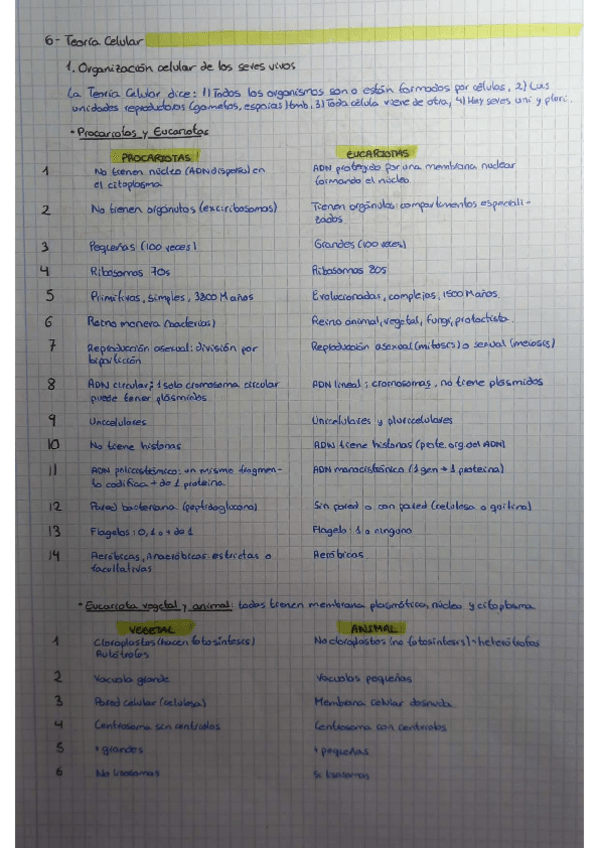 6- Teoría Celular
1. Organización celular de los seres vivos
La Teoría Celular dice: 1) Todos los organismos son o están formados por células, 2) Las
unidades reproductoras (gametos, esporas) tmb, 3) Toda célula viene de otra, 4) Hay seres uni y pluri.
• Procariotas y Eucariotas
PROCARIOTAS EUCARIOTAS
1 No tienen núcleo (ADN disperso) en ADN protegido por una membrana nuclear
el citoplasma formando el núcleo
2 No tienen orgánulos (exc. ribosomas) Tienen orgánulos: compartimentos especiali-
zados
3 Pequeñas (100 veces) Grandes (100 veces)
4 Ribosomas 70s Ribosomas 80s
5 Primitivas, simples, 3800 M años Evolucionadas, complejas, 1500 M años.
6 Reino monera (bacterias) Reino animal, vegetal, fungi, protoctista.
7 Reproducción asexual: división por Reproducción asexual (mitosis) o sexual (meiosis)
bipartición
8 ADN circular; 1 solo cromosoma circular ADN lineal: cromosomas, no tiene plásmidos
puede tener plásmidos
9 Unicelulares Unicelulares y pluricelulares
10 No tiene histonas ADN tiene histonas (prote. org. del ADN)
11 ADN policistrónico: un mismo fragmen- ADN monocistrónico (1 gen → 1 proteína)
to codifica + de 1 proteína
12 Pared bacteriana (peptidoglucano) Sin pared o con pared (celulosa o quitina)
13 Flagelos: 0, 1 o + de 1 Flagelo: 1 o ninguno
14 Aeróbicas, Anaeróbicas: estrictas o Aeróbicas
facultativas
• Eucariota vegetal y animal: todas tienen membrana plasmática, núcleo y citoplasma
VEGETAL ANIMAL
1 Cloroplastos (hacen fotosíntesis) No cloroplastos (no fotosíntesis) - heterótrofos
Autótrofos
2 Vacuola grande Vacuolas pequeñas
3 Pared celular (celulosa) Membrana celular desnuda
4 Centrosoma sin centriolos Centrosoma con centriolos
5 + grandes + pequeñas
6 No lisosomas Si lisosomas